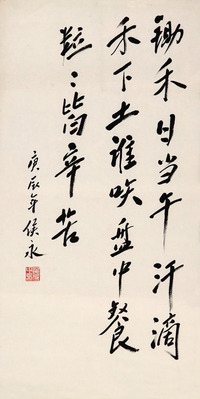 锄禾日当午汗滴
禾下土谁唉盘中餐
粒〻皆辛苦
庚辰年侯永